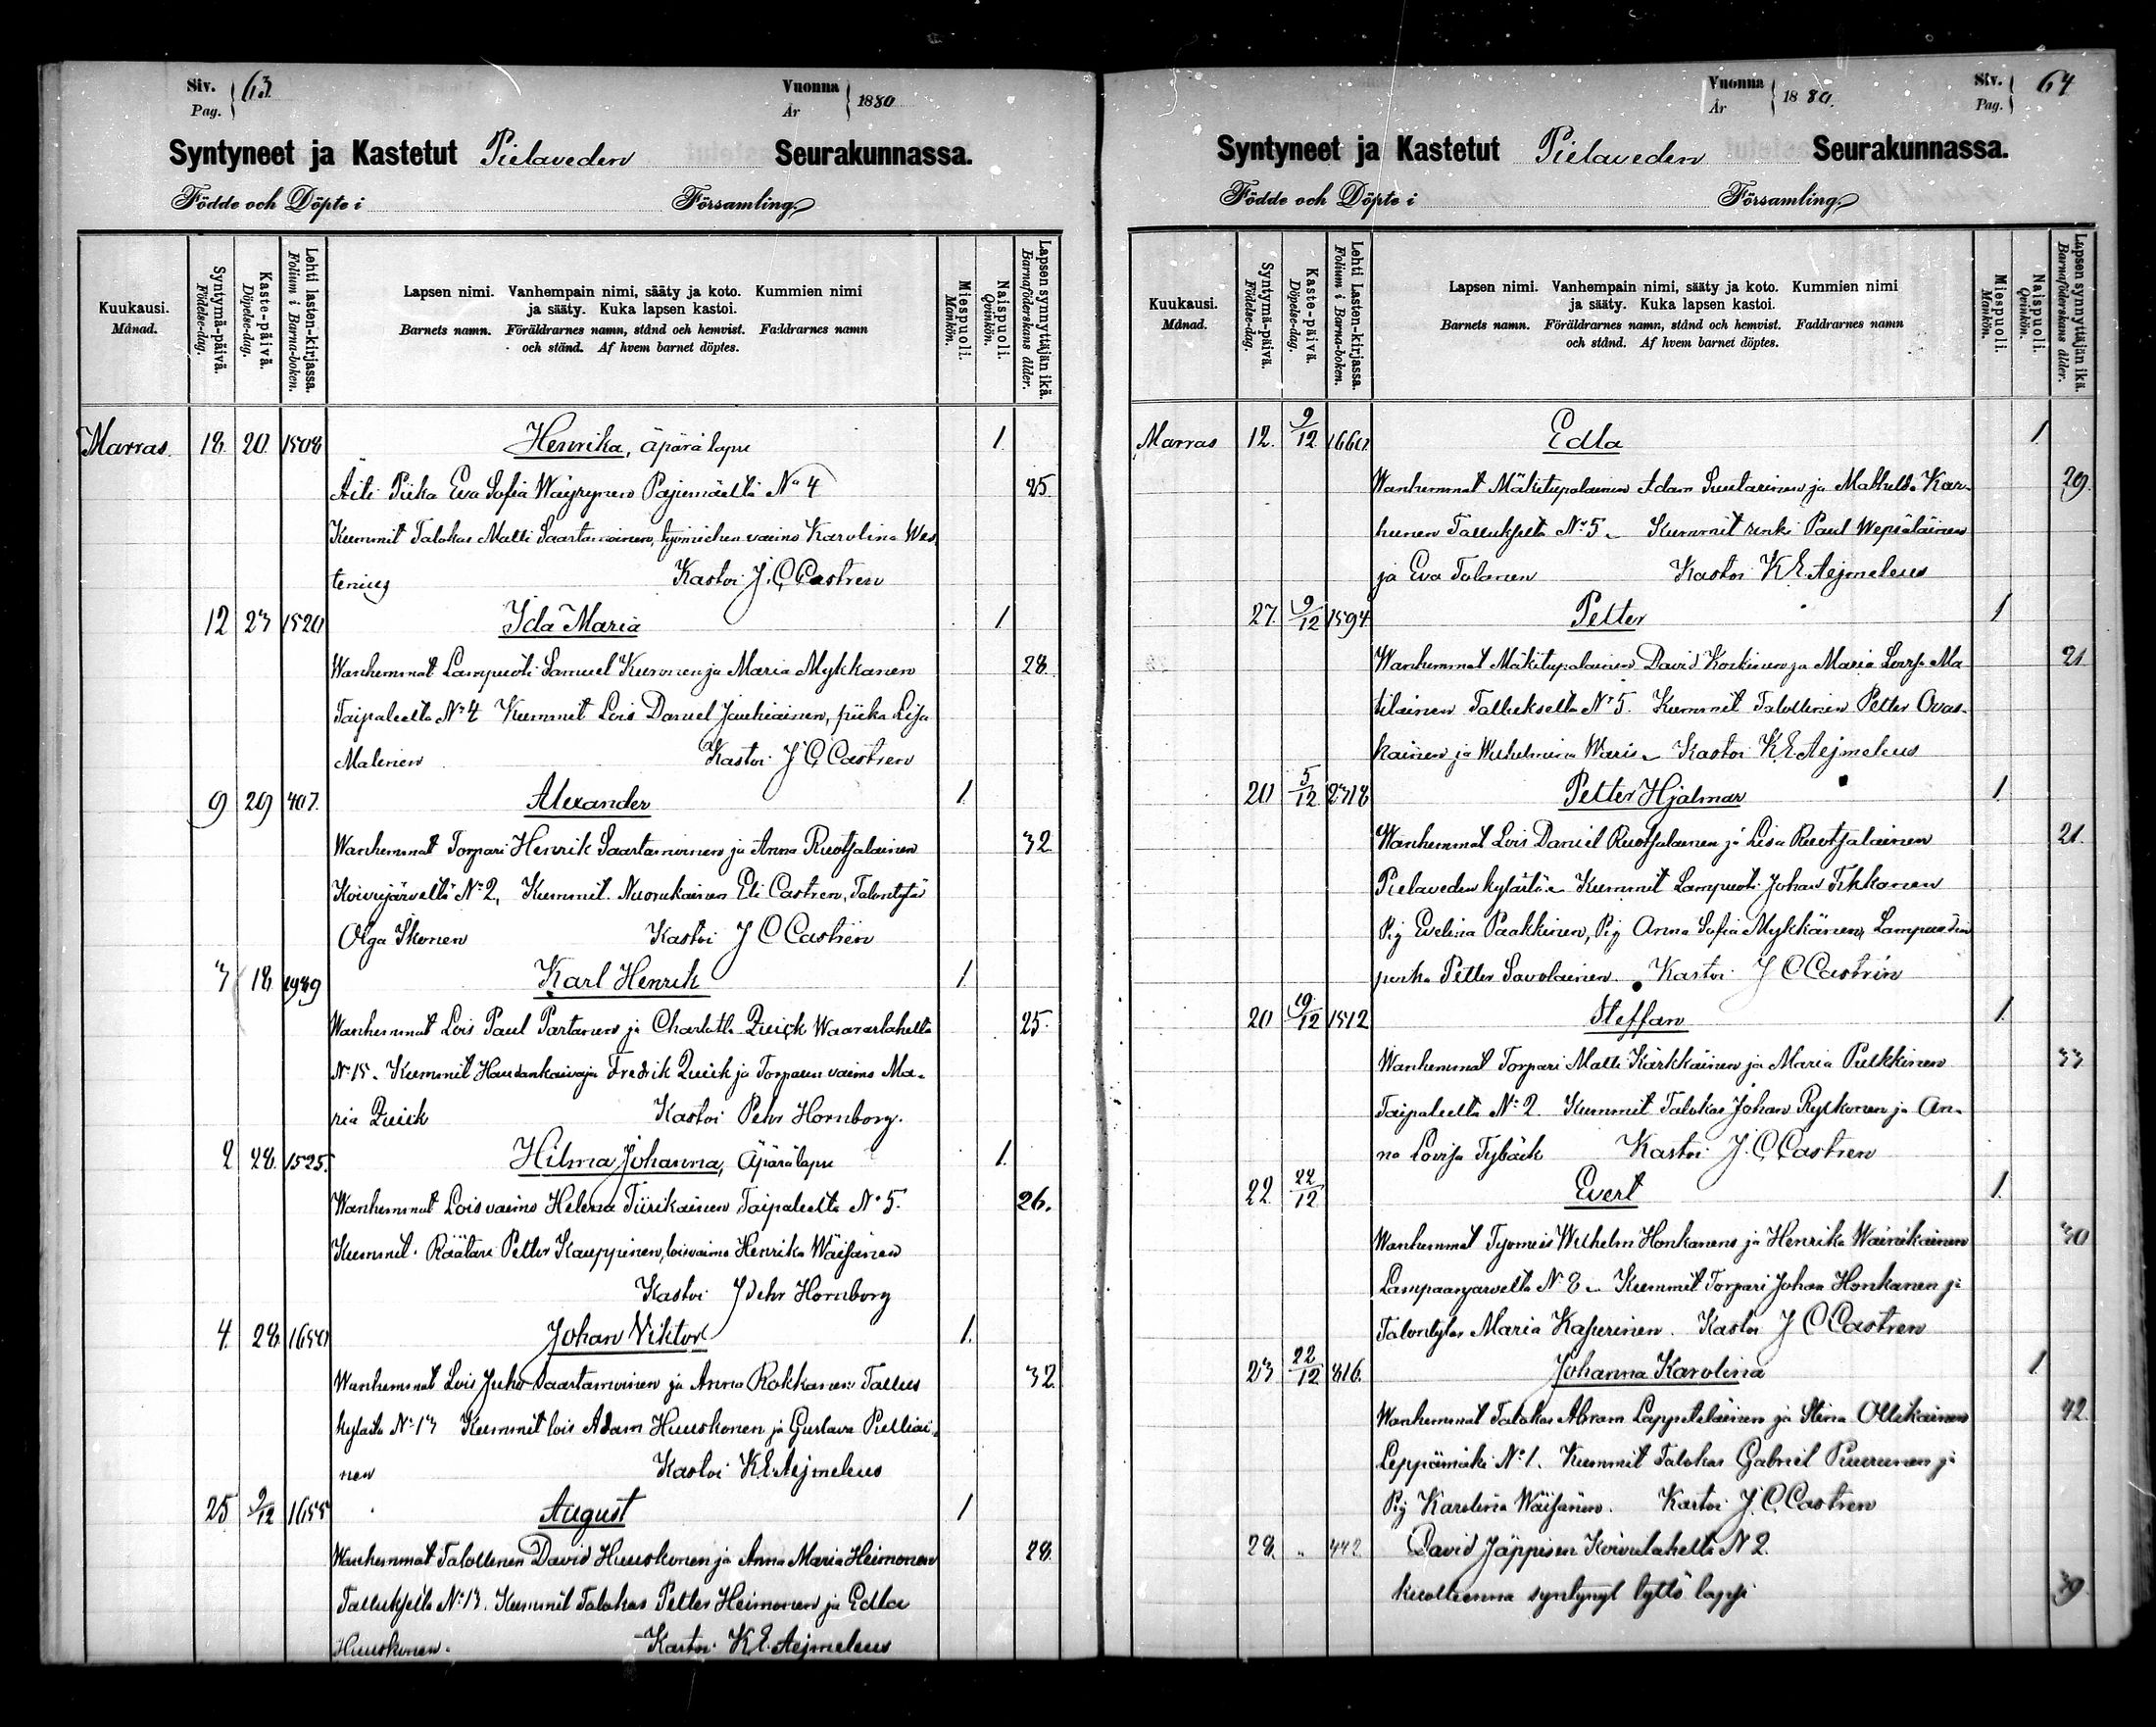 Siv. Pag. 63.
Vuonna År 1880
Syntyneet ja Kastetut Pielaveden Seurakunnassa.
Födde och Döpte i Församling.
Kuukausi. Månad.
Syntymä-päivä. Födelse-dag.
Kaste-päivä. Döpelse-dag.
Lehti lasten-kirjassa. Folium i Barna-boken.
Lapsen nimi. Vanhempain nimi, sääty ja koto. Kummien nimi
ja sääty. Kuka lapsen kastoi.
Barnets namn. Föräldrarnes namn, stånd och hemvist. Faddrarnes namn
och stånd. Af hvem barnet döptes.
Miespuoli. Mankön.
Naispuoli. Qvinkön.
Lapsen synnyttäjän ikä. Barnaföderskans ålder.
Marras. 18. 20. 1508 Henrika, Äpärä lapsi 1.
Äiti Piika Eva Sofia Wäyrynen Pajumäeltä No 4 25.
Kummit Talokas Matti Saartamoinen, työmiehen vaimo Karolina Wes
tenius Kastoi J. C Castren
12 23 1520 Ida Maria 1
Wanhemmat Lampuoti Samuel Kuronen ja Maria Mykkanen 28.
Taipaleelta No 4 Kummit Lois Daniel Jauhiainen, piika Lisa
Malinen Kastoi J C Castren
9 29 407. Alexander 1.
Wanhemmat Torpari Henrik Saartamoinen ja Anna Ruotsalainen 32
Koivujärveltä No 2, Kummit. Nuorukainen Eli Castren, Talontytär
Olga Ikonen Kastoi J C Castren
3 18 1989 Karl Henrik 1
Wanhemmat Lois Paul Partanen ja Charlotta Quick Waaraslahelta 25.
No 15. Kummit Haudankaivaja Fredrik Quick ja Torparin vaimo Ma-
ria Quick Kastoi Pehr Hornborg.
2 28. 1525. Hilma Johanna, Äpärälapsi 1.
Wanhemmat Loisvaimo Helena Tiirikainen Taipaleelta No 5. 26.
Kummit. Räätäri Petter Kauppinen, loisvaimo Henrika Wäisänen
Kastoi Pehr Hornborg
4. 28. 1650 Johan Viktor 1.
Wanhemmat Lois Juho Saartamoinen ja Anna Rokkanen Tallus 32.
kylästä No 13 Kummit lois Adam Huuskonen ja Gustava Pielliäi-
nen Kastoi K. E. Aejmeleus
25 9/12 1655 August 1
Wanhemmat Talollinen David Huuskonen ja Anna Maria Heimonen 28.
Tallukselta No 13. Kummit Talokas Petter Heimonen ja Edla
Huuskonen. Kastoi K. E. Aejmeleus
Vuonna År 1880.
Siv. Pag. 64
Syntyneet ja Kastetut Pielaveden Seurakunnassa.
Födde och Döpte i Församling.
Kuukausi. Månad.
Syntymä-päivä. Födelse-dag.
Kaste-päivä. Döpelse-dag.
Lehti Lasten-kirjassa. Folium i Barna-boken.
Lapsen nimi. Vanhempain nimi, sääty ja koto. Kummien nimi
ja sääty. Kuka lapsen kastoi.
Barnets namn. Föräldrarnes namn, stånd och hemvist. Faddrarnes namn
och stånd. Af hvem barnet döptes.
Miespuoli. Mankön.
Naispuoli. Qvinkön.
Lapsen synnyttäjän ikä. Barnaföderskans ålder.
Marras 12. 9/12 1660. Edla 1.
Wanhemmat Mäkitupalainen Adam Suutarinen ja Mathilda Kar- 29.
hunen Tallukselta No 5. Kummit renki Paul Wepsäläinen
ja Eva Talanen Kastoi K. E. Aejmeleus
27. 9/12 1594 Petter 1
Wanhemmat Mäkitupalainen David Korkinen ja Maria Lovisa Ma 21
tilainen Tallukselta No 5. Kummit Talollinen Petter Ovas-
kainen ja Wilhelmina Waris. Kastoi K. E. Aejmeleus
20 5/12 2318 Petter Hjalmar 1.
Wanhemmat Lois Daniel Ruotsalainen ja Lisa Ruotsalainen 21.
Pielaveden kylästä. Kummit Lampuoti Johan Tikkanen
Pig Evelina Paakkinen, Pig Anna Sofia Mykkänen, Lampuodin
poika Petter Savolainen. Kastoi J C Castrén
20 19/12 1512 Steffan 1.
Wanhemmat Torpari Matti Kärkkäinen ja Maria Pulkkinen 33
Taipaleelta No 2 Kummit Talokas Johan Rytkonen ja An-
na Lovisa Tybäck Kastoi J. C. Castren
22. 22/12 Evert 1.
Wanhemmat Tyomies Wilhelm Honkanen ja Henrika Wainikainen 30
Lampaanjarvelta N 8. Kummit Torpari Johan Honkanen ja
Talontytar Maria Kasurinen. Kastoi J C Castren
23 22/12 816. Johanna Karolina 1.
Wanhemmat Talokas Abram Lappeteläinen ja Stina Ollikainen 42.
Leppämäki No 1. Kummit Talokas Gabriel Puurunen ja
Pig Karolina Wäisänen. Kastoi J. C. Castren
28. „ 442 David Jäppisen Koivulahelta N 2.
kuolleenna syntynyt tyttö lapsi 39.